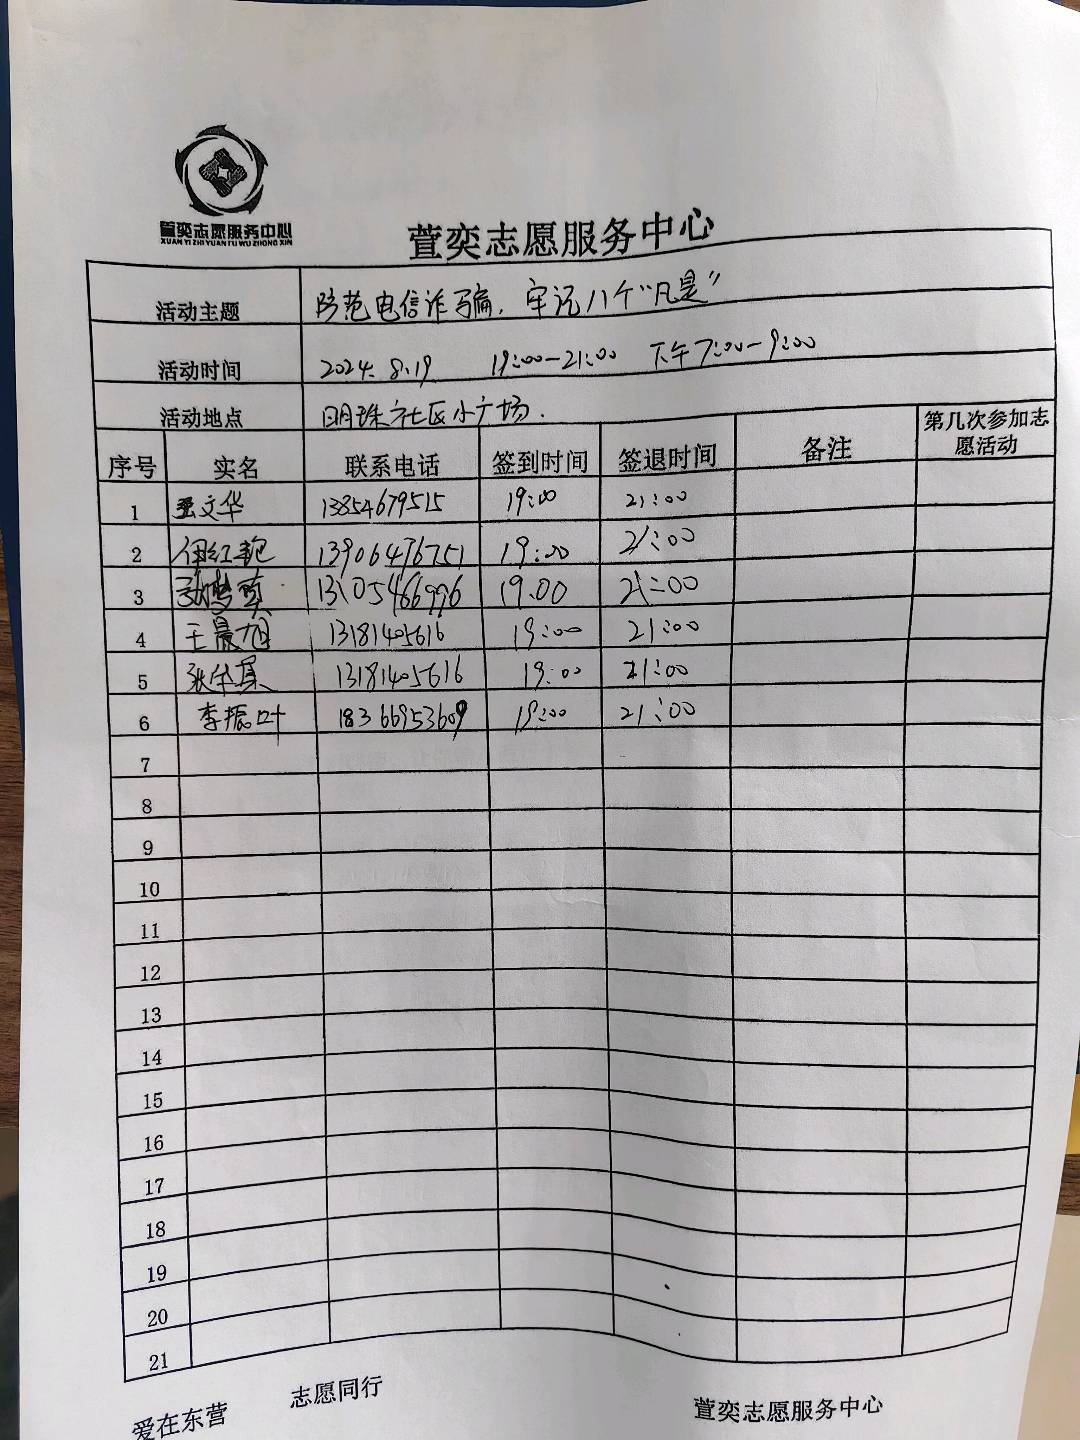 萱奕志愿服务中心
XUAN YI ZHI YUAN FU WU ZHONG XIN
萱奕志愿服务中心
活动主题 防范电信诈骗，牢记八个“凡是”
活动时间 2024.8.19 19:00-21:00 下午7:00-9:00
活动地点 明珠社区小广场.
序号 实名 联系电话 签到时间 签退时间 备注 第几次参加志愿活动
1 文华 13854679515 19:00 21:00
2 13906476751 19:00 21:00
3 13105466996 19:00 21:00
4 王晨旭 13181405616 19:00 21:00
5 张 13181405616 19:00 21:00
6 李振叶 18366953609 19:00 21:00
7
8
9
10
11
12
13
14
15
16
17
18
19
20
21
爱在东营 志愿同行 萱奕志愿服务中心